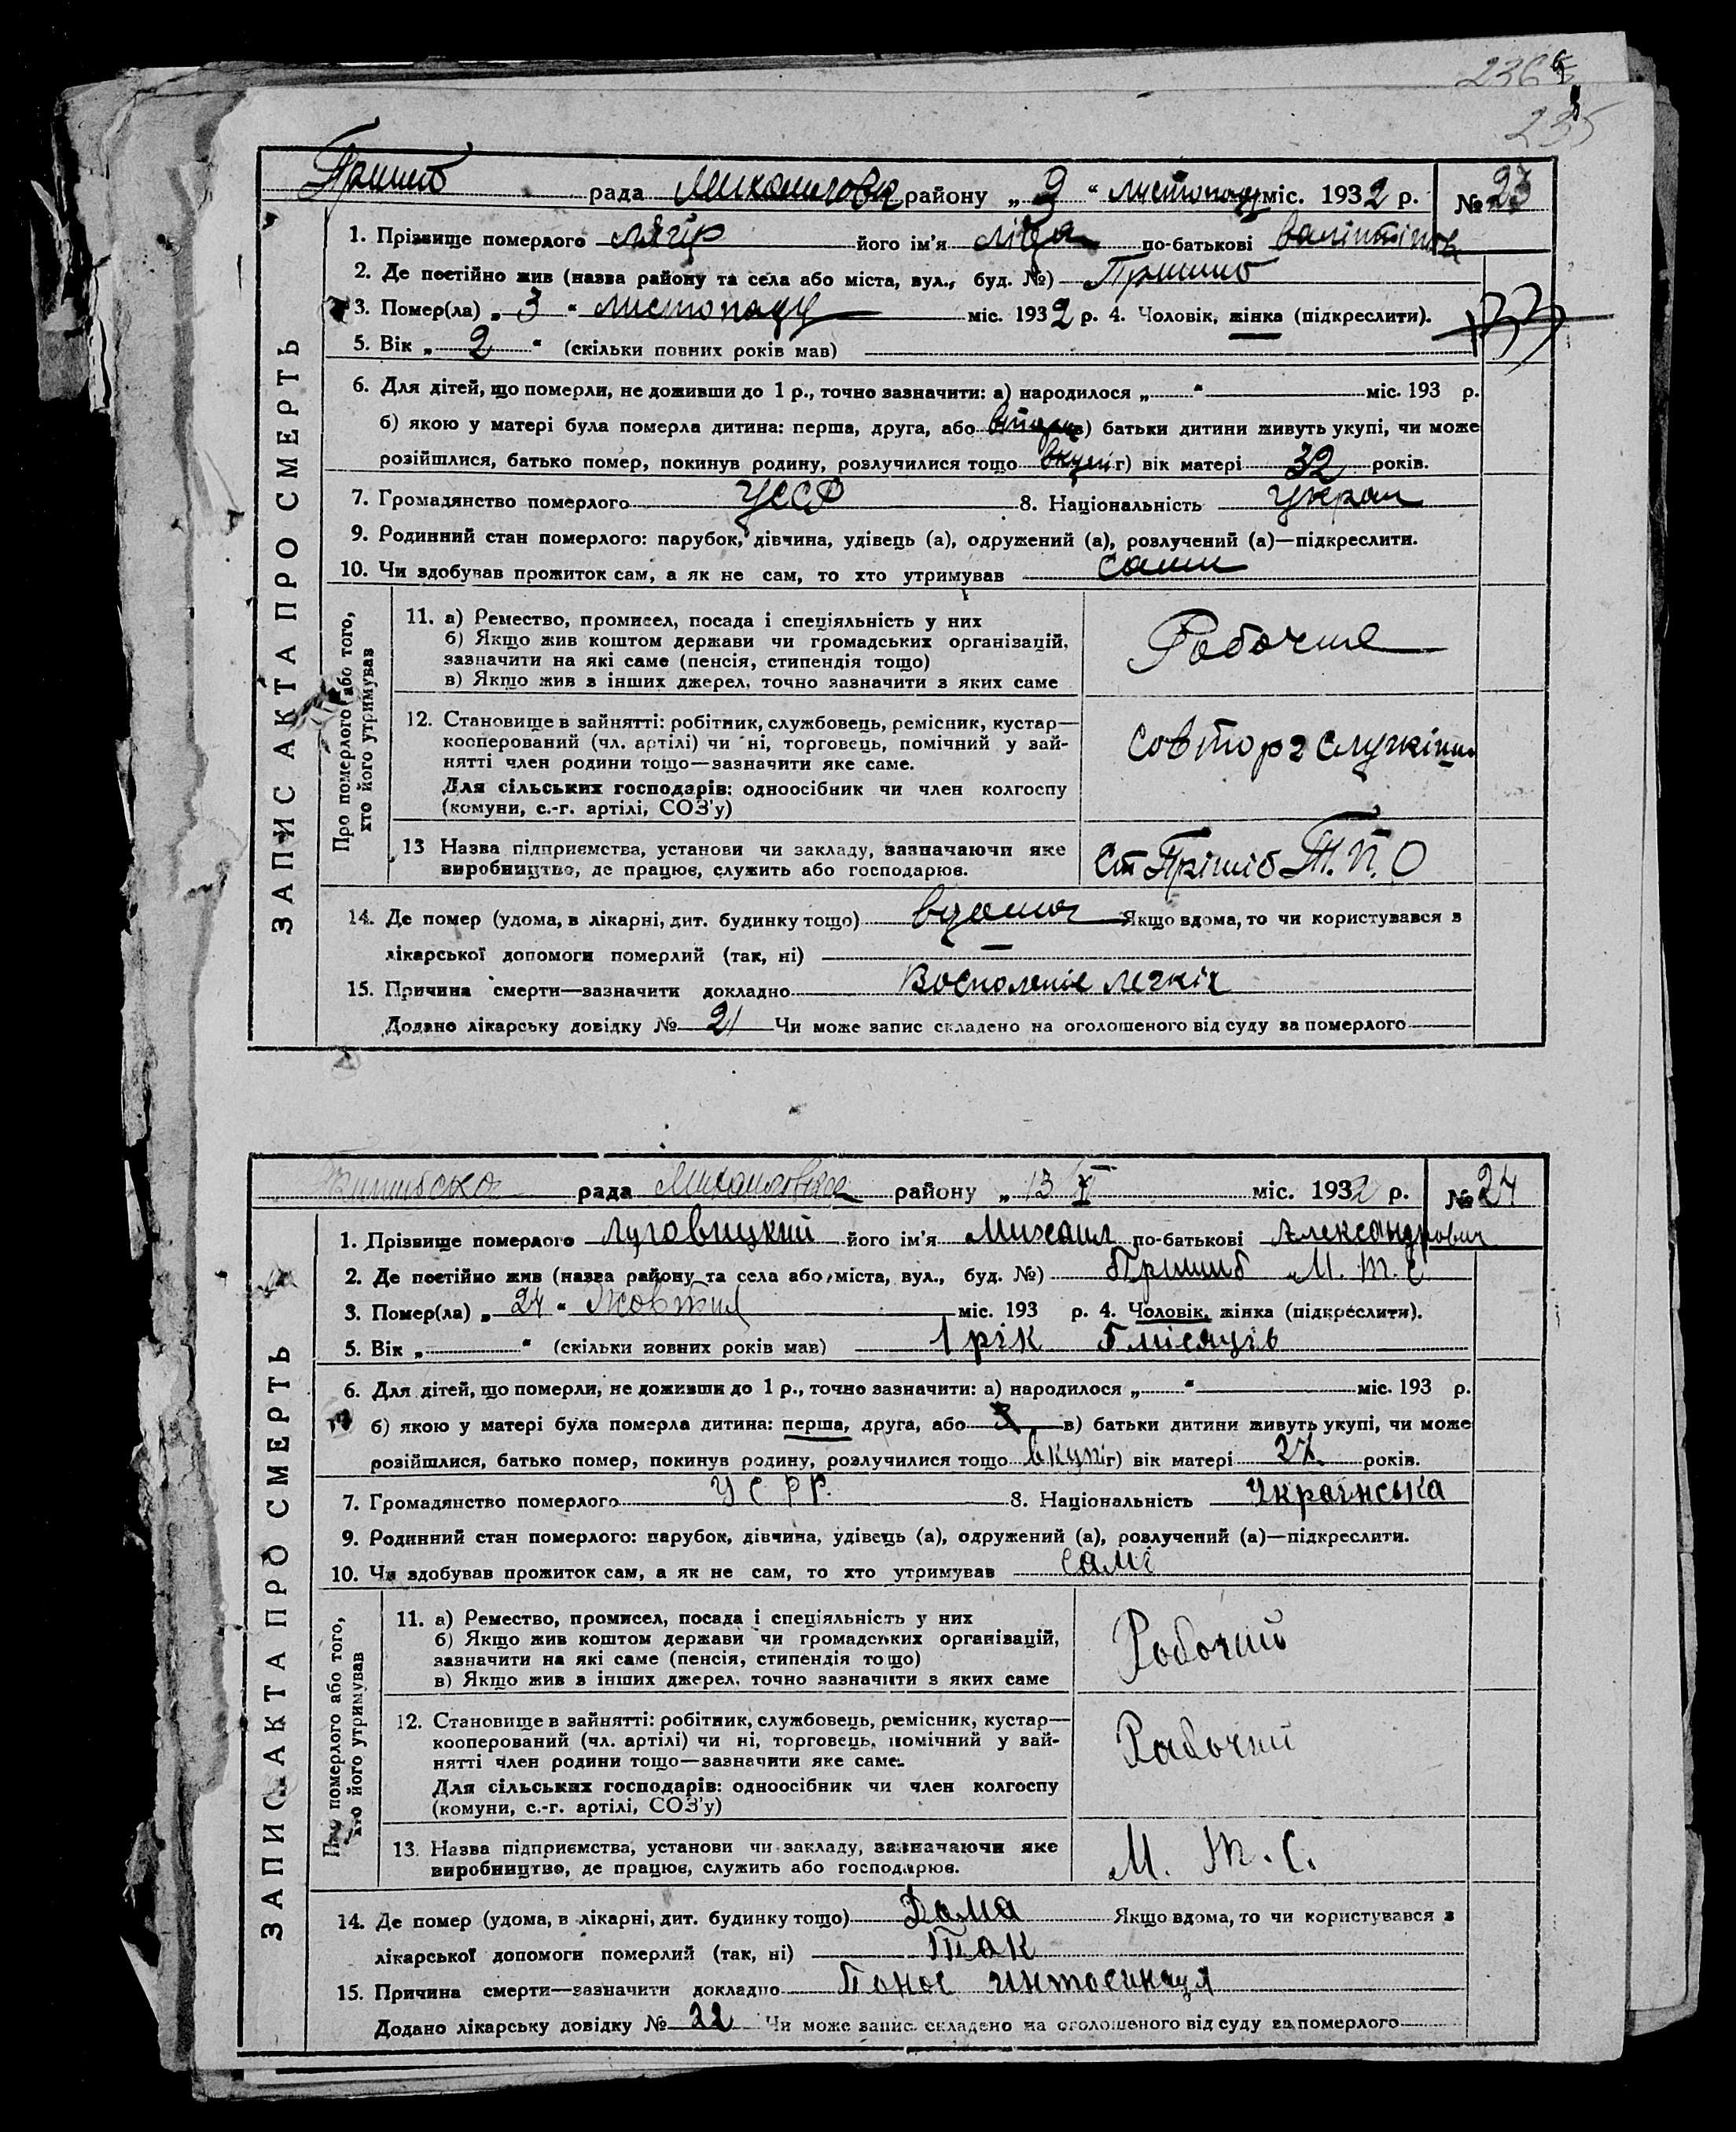 236
235
Пришиб рада Михайловск району „ 9 “ листопаду міс. 1932 р. № 23
1. Прізвище померлого його ім'я по-батькові
2. Де постійно жив (назва району та села або міста, вул., буд. №) Пришиб
3. Помер(ла) „ 3 “ листопаду міс. 1932 р. 4. Чоловік, жінка (підкреслити).
5. Вік „ 2 “ (скільки повних років мав)
6. Для дітей, що померли, не доживши до 1 р., точно зазначити: а) народилося „ “ міс. 193 р.
б) якою у матері була померла дитина: перша, друга, або в) батьки дитини живуть укупі, чи може
розійшлися, батько помер, покинув родину, розлучилися тощо вкупі г) вік матері 32 років.
7. Громадянство померлого УССР 8. Національність Украин
9. Родинний стан померлого: парубок, дівчина, удівець (а), одружений (а), розлучений (а)—підкреслити.
10. Чи здобував прожиток сам, а як не сам, то хто утримував сами
ЗАПИС АКТА ПРО СМЕРТЬ
Про померлого або того,
хто його утримував
11. а) Ремество, промисел, посада і спеціяльність у них
б) Якщо жив коштом держави чи громадських організацій,
зазначити на які саме (пенсія, стипендія тощо)
в) Якщо жив з інших джерел, точно зазначити з яких саме
Робочие
12. Становище в зайнятті: робітник, службовець, ремісник, кустар—
кооперований (чл. артілі) чи ні, торговець, помічний у зай-
нятті член родини тощо—зазначити яке саме.
Для сільських господарів: одноосібник чи член колгоспу
(комуни, с.-г. артілі, СОЗ'у)
Совторг
13 Назва підприємства, установи чи закладу, зазначаючи яке
виробництво, де працює, служить або господарює.
Ст Прішіб Т.П.О
14. Де помер (удома, в лікарні, дит. будинку тощо) вдома Якщо вдома, то чи користувався з
лікарської допомоги померлий (так, ні)
15. Причина смерти—зазначити докладно Восполение легкіх
Додано лікарську довідку № 21 Чи може запис складено на оголошеного від суду за померлого
Пришибска рада Михайловска району „ 13 XI міс. 1932 р. № 24
1. Прізвище померлого Луговицкий його ім'я Михаил по-батькові Александрович
2. Де постійно жив (назва району та села або міста, вул., буд. №) Пришиб М. Т. С
3. Помер(ла) „ 24 “ Жовтня міс. 193 р. 4. Чоловік, жінка (підкреслити).
5. Вік „ “ (скільки повних років мав) 1 рік 5 місяців
6. Для дітей, що померли, не доживши до 1 р., точно зазначити: а) народилося „ “ міс. 193 р.
б) якою у матері була померла дитина: перша, друга, або в) батьки дитини живуть укупі, чи може
розійшлися, батько помер, покинув родину, розлучилися тощо вкупі г) вік матері 27 років.
7. Громадянство померлого УСРР. 8. Національність Українська
9. Родинний стан померлого: парубок, дівчина, удівець (а), одружений (а), розлучений (а)—підкреслити.
10. Чи здобував прожиток сам, а як не сам, то хто утримував самі
ЗАПИС АКТА ПРО СМЕРТЬ
Про померлого або того,
хто його утримував
11. а) Ремество, промисел, посада і спеціяльність у них
б) Якщо жив коштом держави чи громадських організацій,
зазначити на які саме (пенсія, стипендія тощо)
в) Якщо жив з інших джерел, точно зазначити з яких саме
Робочий
12. Становище в зайнятті: робітник, службовець, ремісник, кустар—
кооперований (чл. артілі) чи ні, торговець, помічний у зай-
нятті член родини тощо—зазначити яке саме.
Для сільських господарів: одноосібник чи член колгоспу
(комуни, с.-г. артілі, СОЗ'у)
Робочий
13. Назва підприємства, установи чи закладу, зазначаючи яке
виробництво, де працює, служить або господарює.
М. Т. С.
14. Де помер (удома, в лікарні, дит. будинку тощо) Дома Якщо вдома, то чи користувався з
лікарської допомоги померлий (так, ні) Так
15. Причина смерти—зазначити докладно Понос интосикация
Додано лікарську довідку № 22 Чи може запис складено на оголошеного від суду за померлого